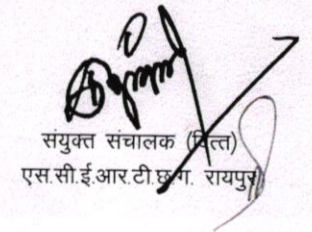 संयुक्त संचालक (वित्त)
एस.सी.ई.आर.टी.छ.ग. रायपुर